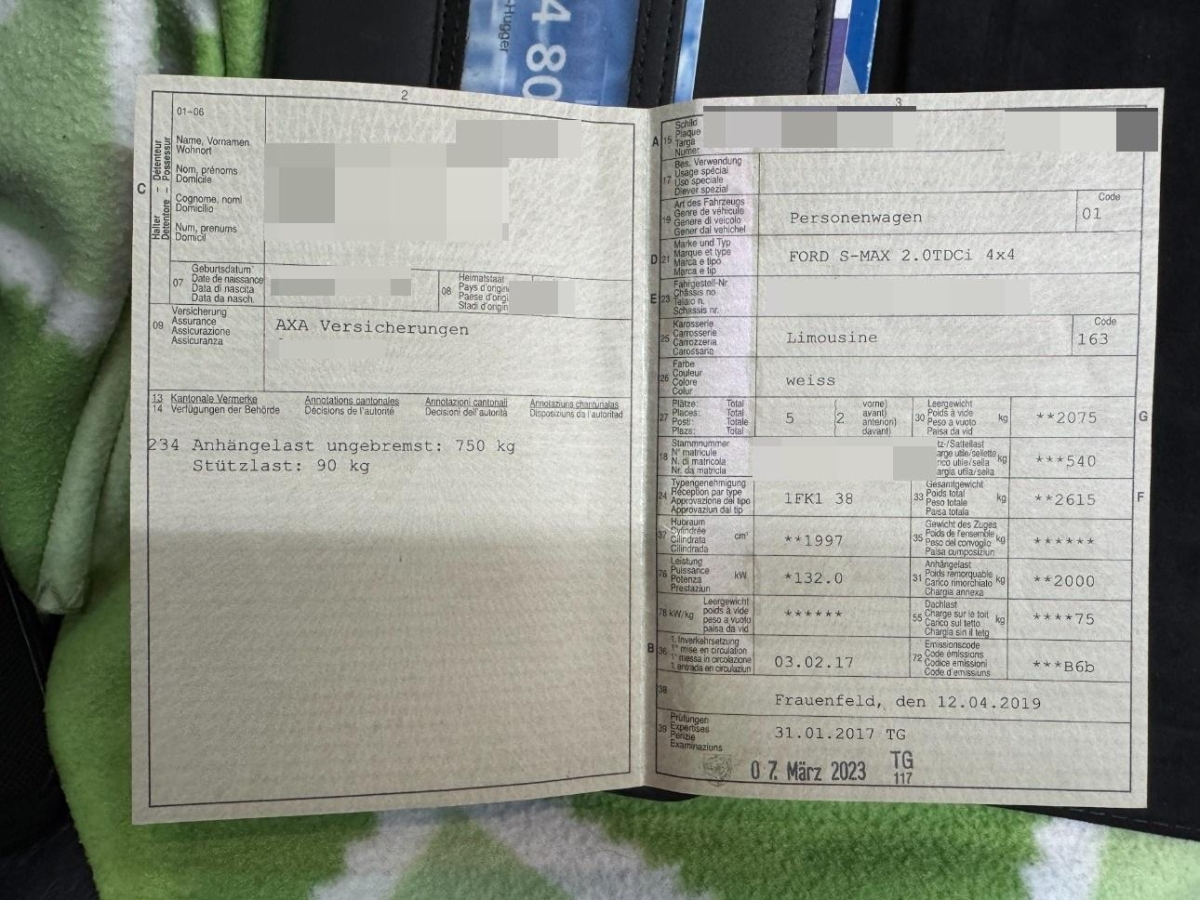 Hugger
4 80
2
01-06
Halter – Détenteur
Detentore – Possessur
C
Name, Vornamen
Wohnort
Nom, prénoms
Domicile
Cognome, nomi
Domicilio
Num, prenums
Domicil
07
Geburtsdatum
Date de naissance
Data di nascita
Data da nasch.
08
Heimatstaat
Pays d'origin
Paese d'origi
Stadi d'origin
09
Versicherung
Assurance
Assicurazione
Assicuranza
AXA Versicherungen
13 Kantonale Vermerke
Annotations cantonales
Annotazioni cantonali
Annotaziuns chantunalas
14 Verfügungen der Behörde
Décisions de l'autorité
Decisioni dell'autorità
Disposiziuns da l'autoritad
234 Anhängelast ungebremst: 750 kg
Stützlast: 90 kg
3
A 15
Schild
Plaque
Targa
Numer
17
Bes. Verwendung
Usage spécial
Uso speciale
Diever spezial
19
Art des Fahrzeugs
Genre de véhicule
Genere di veicolo
Gener dal vehichel
Personenwagen
Code
01
D 21
Marke und Typ
Marque et type
Marca e tipo
Marca e tip
FORD S-MAX 2.0TDCi 4x4
E 23
Fahrgestell-Nr
Châssis no
Telaio n.
Schassis nr.
25
Karosserie
Carrosserie
Carrozzeria
Carossaria
Limousine
Code
163
26
Farbe
Couleur
Colore
Colur
weiss
27
Plätze: Total
Places: Total
Posti: Totale
Plazs: Total
5
( vorne)
avant)
anteriori)
davant)
2
30
Leergewicht
Poids à vide
Peso a vuoto
Paisa da vid
kg
**2075
G
18
Stammnummer
N° matricule
N. di matricola
Nr. da matricla
tz-/Sattellast
arge utile/sellette
rico utile/sella
argia utila/sella
kg
***540
24
Typengenehmigung
Réception par type
Approvazione del tipo
Approvaziun dal tip
1FK1 38
33
Gesamtgewicht
Poids total
Peso totale
Paisa totala
kg
**2615
F
37
Hubraum
Cylindrée
Cilindrata
Cilindrada
cm³
**1997
35
Gewicht des Zuges
Poids de l'ensemble
Peso del convoglio
Paisa cumposiziun
kg
******
76
Leistung
Puissance
Potenza
Prestaziun
kW
*132.0
31
Anhängelast
Poids remorquable
Carico rimorchiato
Chargia annexa
kg
**2000
78 kW/kg
Leergewicht
poids à vide
peso a vuoto
paisa da vid
******
55
Dachlast
Charge sur le toit
Carico sul tetto
Chargia sin il tetg
kg
****75
B 36
1. Inverkehrsetzung
1re mise en circulation
1a messa in circolazione
1. entrada en circulaziun
03.02.17
72
Emissionscode
Code émissions
Codice emissioni
Code d'emissiuns
***B6b
38
Frauenfeld, den 12.04.2019
39
Prüfungen
Expertises
Perizie
Examinaziuns
31.01.2017 TG
07. März 2023
TG
117